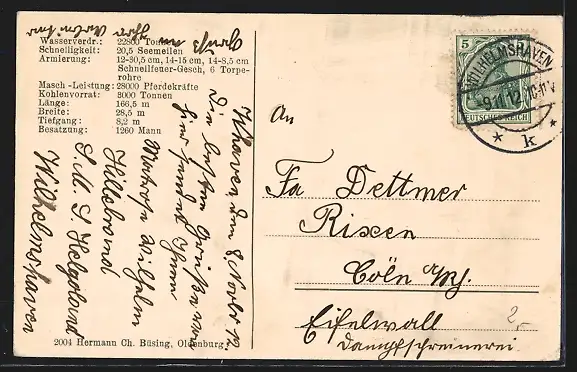 Wasserverdr.: 22800 Tonnen
Schnelligkeit: 20,5 Seemeilen
Armierung: 12-30,5 cm, 14-15 cm, 14-8,5 cm
Schnellfeuer-Gesch, 6 Torpe-
rohre
Masch-Leistung: 28000 Pferdekräfte
Kohlenvorrat: 3000 Tonnen
Länge: 166,5 m
Breite: 28,5 m
Tiefgang: 8,2 m
Besatzung: 1260 Mann
W'haven den 8. Novbr 12.
Die besten Grüße von
hier sendet Ihnen
Matrose Wilhelm
Hillebrand
S. M. S Helgoland
Wilhelmshaven
Gruß an
2004 Hermann Ch. Büsing, Oldenburg.
5
DEUTSCHES REICH
WILHELMSHAVEN
9.11.12.
* k *
An
Fa Dettmer
Rixen
Cöln a/Rh.
Eifelwall
Dampfschreinerei.
2,-